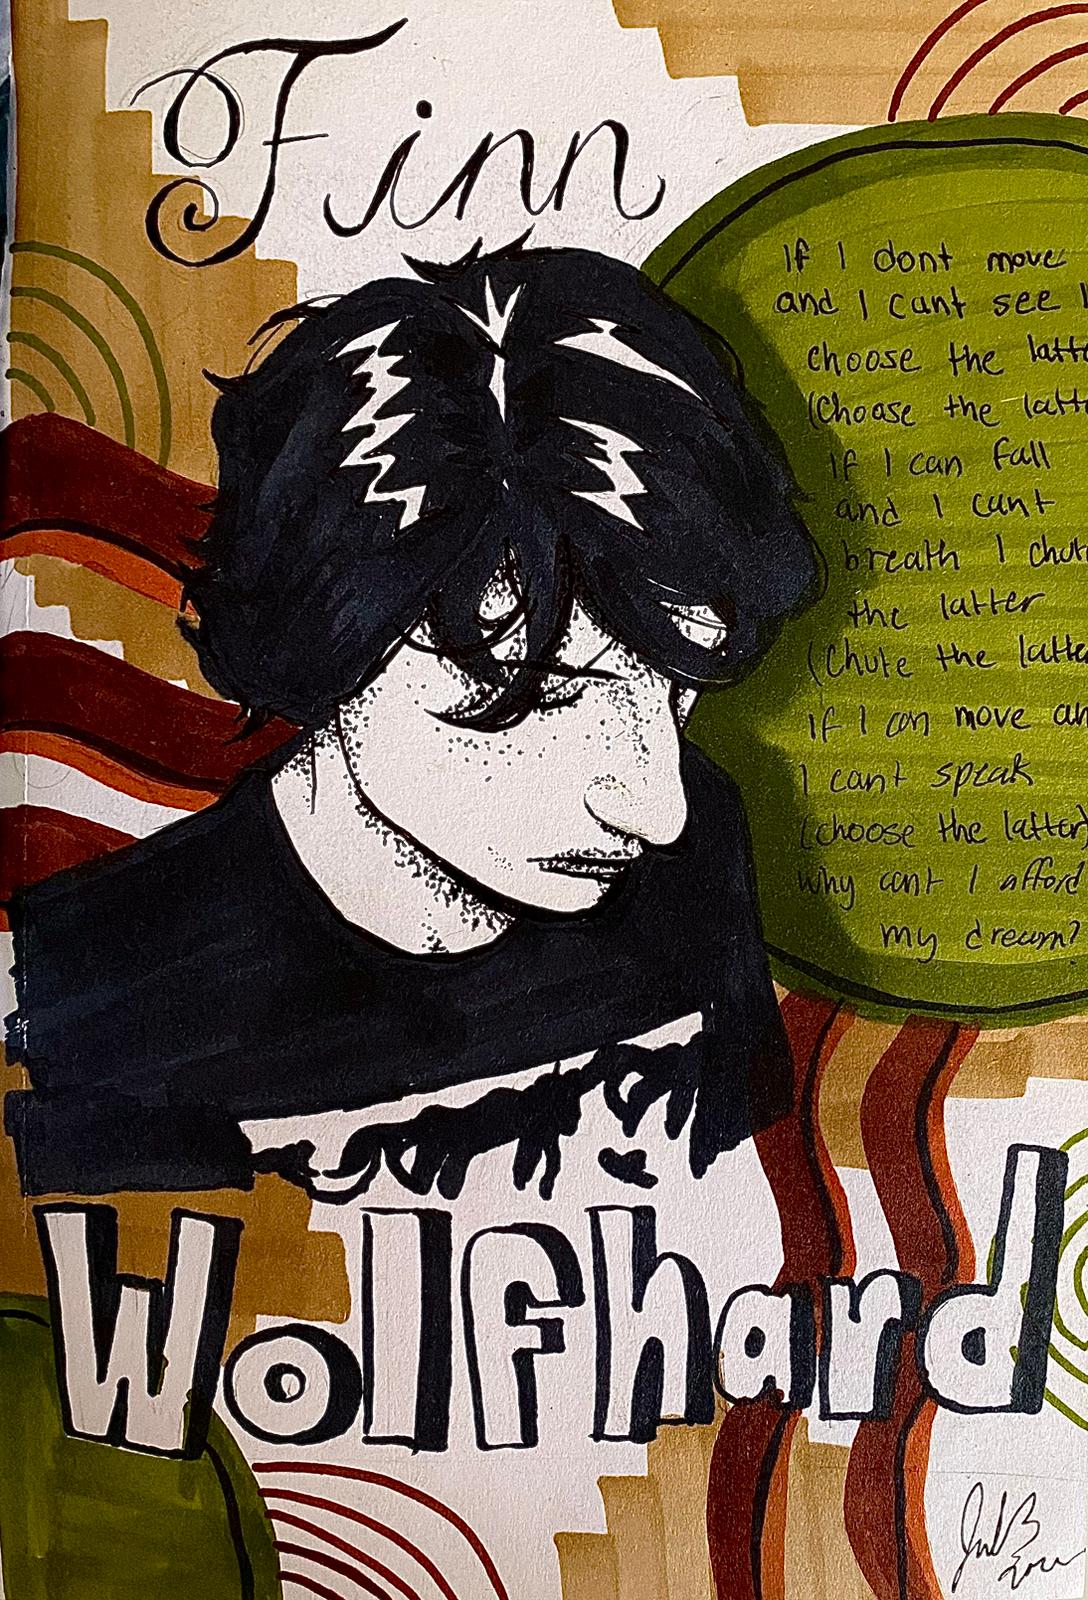 Finn
If I dont move
and I cant see I
choose the
(Choose the
If I can fall
and I cant
breath I
the latter
(Chute the
If I can move
I cant speak
(choose the latter)
why cant I afford
my dream?
Wolfhard